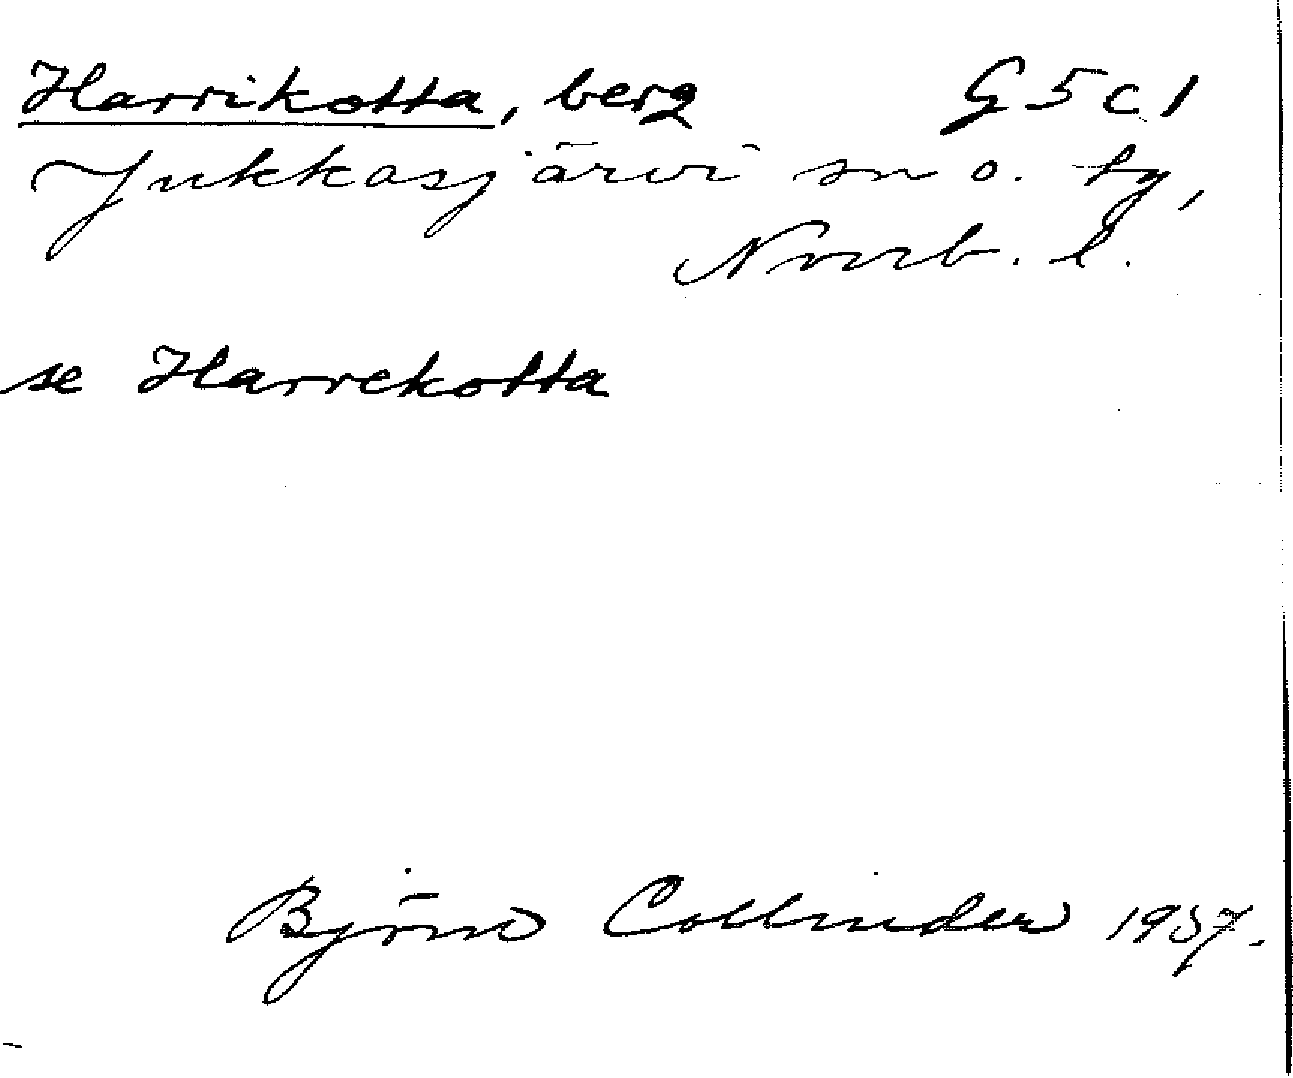 Harrikotta, berg G 5 c 1
Jukkasjärvi sn o. tg,
Norrb. l.
se Harrekotta
Björn Collinder 1957.